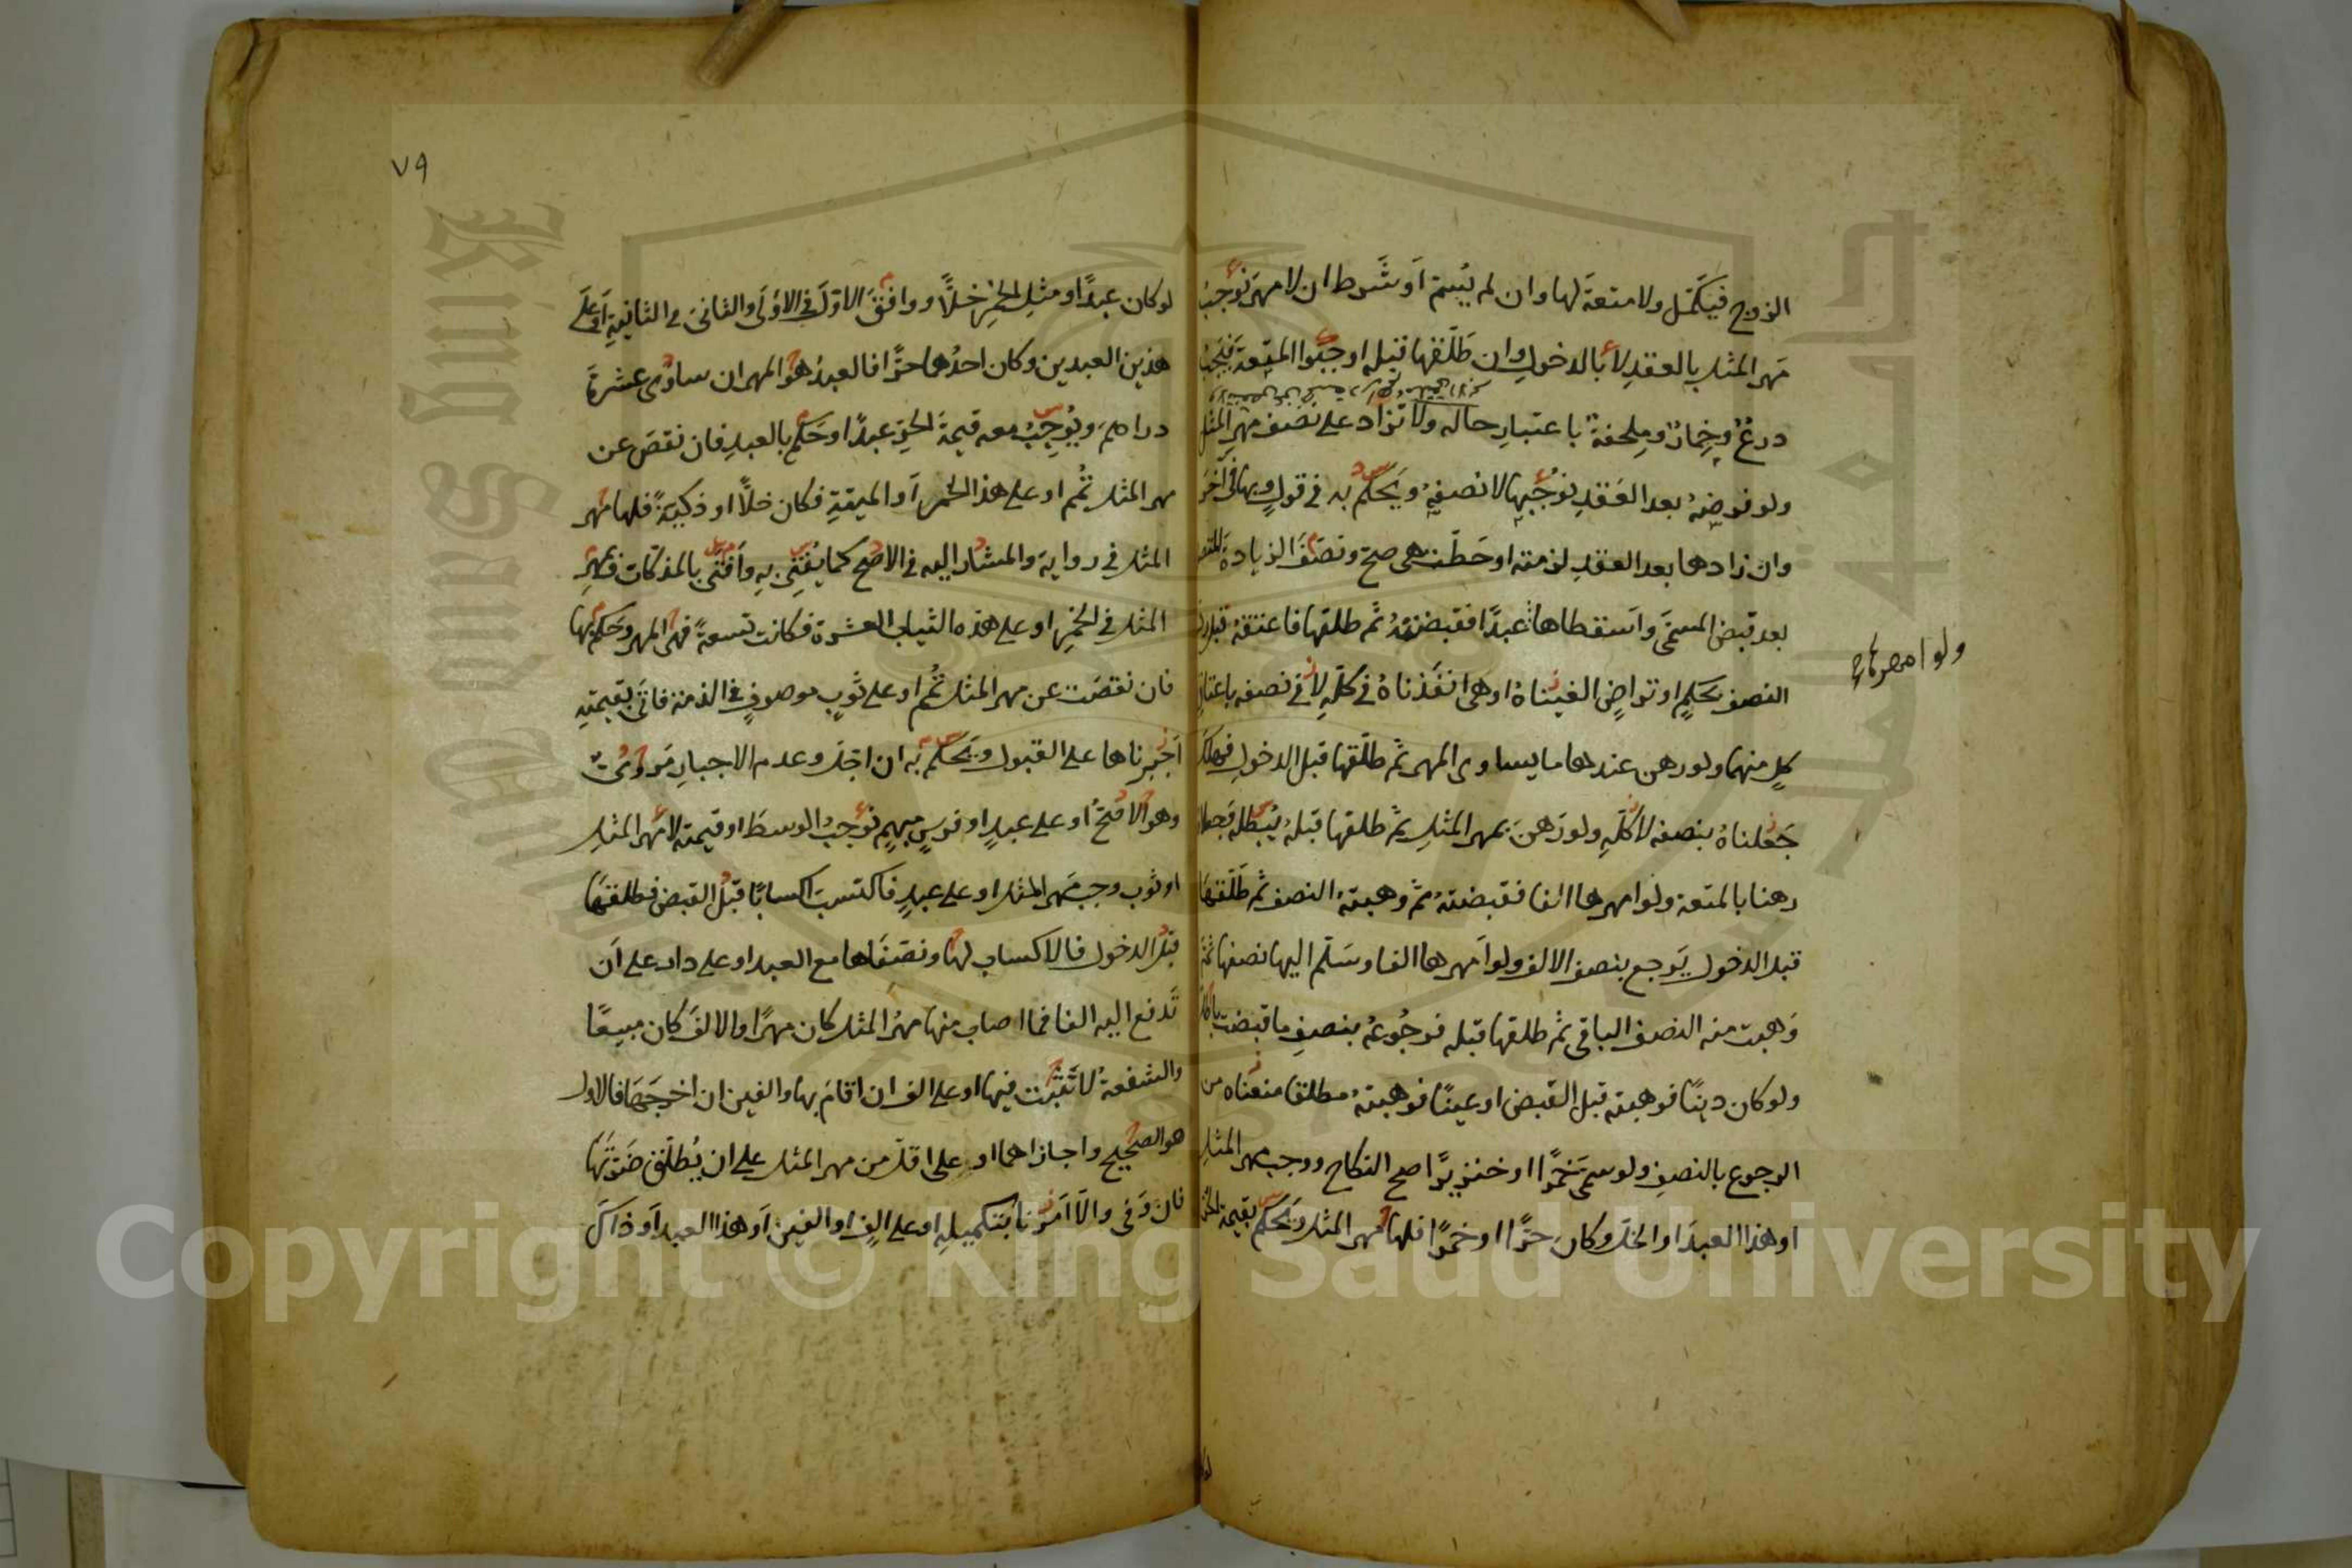 الزوج فيكمل ولا متعة لها وان لم يسم او شرط ان لا مهر نوجب
مهر المثل بالعقد لا بالدخول وان طلقها قبله اوجبوا المتعة فيجب
درع وخمار وملحفة باعتبار حاله ولا تزاد على نصف مهر المثل
ولو فرضه بعد العقد نوجبها لا نصفه ويحكم به في قول وبها في آخر
وان زادها بعد العقد لزمته او حطت هي صح ونصف الزيادة
بعد قبض المسمى واسقطاها عبدا فقبضته ثم طلقها فاعتقه قبل رد
النصف بحكم او تراض الغيناه او هي انفذناه في كله لا في نصفه باعتاق
كل منهما ولو رهن عندها ما يساوي المهر ثم طلقها قبل الدخول فهلك
جعلناه بنصفه لا كله ولو رهن بمهر المثل ثم طلقها قبله يبطله فجعلا
رهنا بالمتعة ولو امهرها الفا فقبضته ثم وهبته النصف ثم طلقها
قبل الدخول يرجع بنصف الالف ولو امهرها الفا وسلم اليها نصفها ثم
وهبت منه النصف الباقي ثم طلقها قبله فرجوعه بنصف ما قبضت باطل
ولو كان دينا فوهبته قبل القبض او عينا فوهبته مطلقا منعناه من
الرجوع بالنصف ولو سمى خمرا او خنزيرا صح النكاح ووجب مهر المثل
او هذا العبد او الخل وكان حرا او خمرا فلها مهر المثل ويحكم بقيمة الحر
ولو امهرها
٧٩
لو كان عبدا او مثل الخمر خلا ووافق الاول في الاولى والثاني في الثانية او على
هذين العبدين وكان احدهما حرا فالعبد هو المهر ان ساوى عشرة
دراهم ويوجب معه قيمة الحر عبدا وحكم بالعبد فان نقص عن
مهر المثل تمم او على هذا الخمر او الميتة فكان خلا او ذكية فلها مهر
المثل في رواية والمشار اليه في الاصح كما يفتي به وافتى بالمذكاة وبمهر
المثل في الخمر او على هذه الثياب العشرة فكانت تسعة فهي المهر وحكم بها
فان نقصت عن مهر المثل تمم او على ثوب موصوف في الذمة فاتى بقيمته
اجبرناها على القبول ويحكم به ان اجل وعدم الاجبار مروي
وهو الاصح او على عبد او فرس مبهم نوجب الوسط او قيمته لا مهر المثل
او ثوب وجب مهر المثل او على عبد فاكتسب اكسابا قبل القبض فطلقها
قبل الدخول فالاكساب لها ونصفاها مع العبد او على دار على ان
تدفع اليه الفا فما اصاب منها مهر المثل كان مهرا والالف كان مبيعا
والشفعة لا تثبت فيها او على الف ان اقام بها والفين ان اخرجها فالاول
هو الصحيح واجازاهما او على اقل من مهر المثل على ان يطلق ضرتها
فان وفى والا امرنا بتكميله او على الف او الفين او هذا العبد او ذاك
Copyright © King Saud University